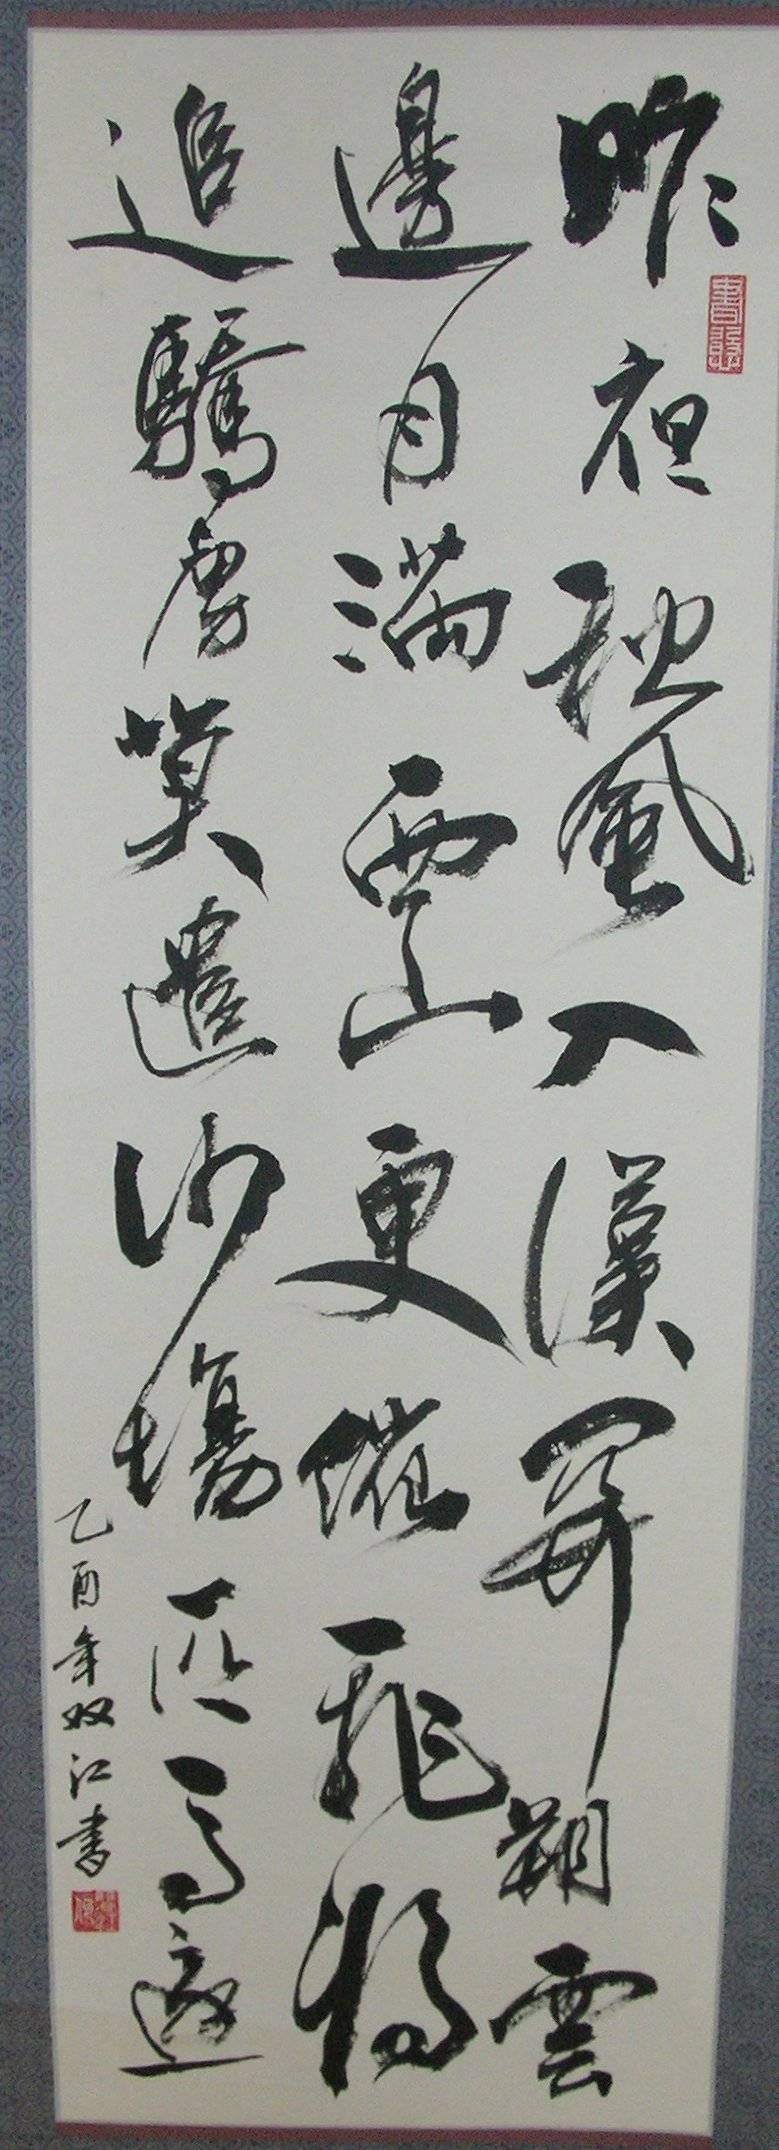 昨夜秋風入漢關朔雲
邊月滿西山更催飛將
追驕虜莫遣沙場匹馬還
乙酉年双江書